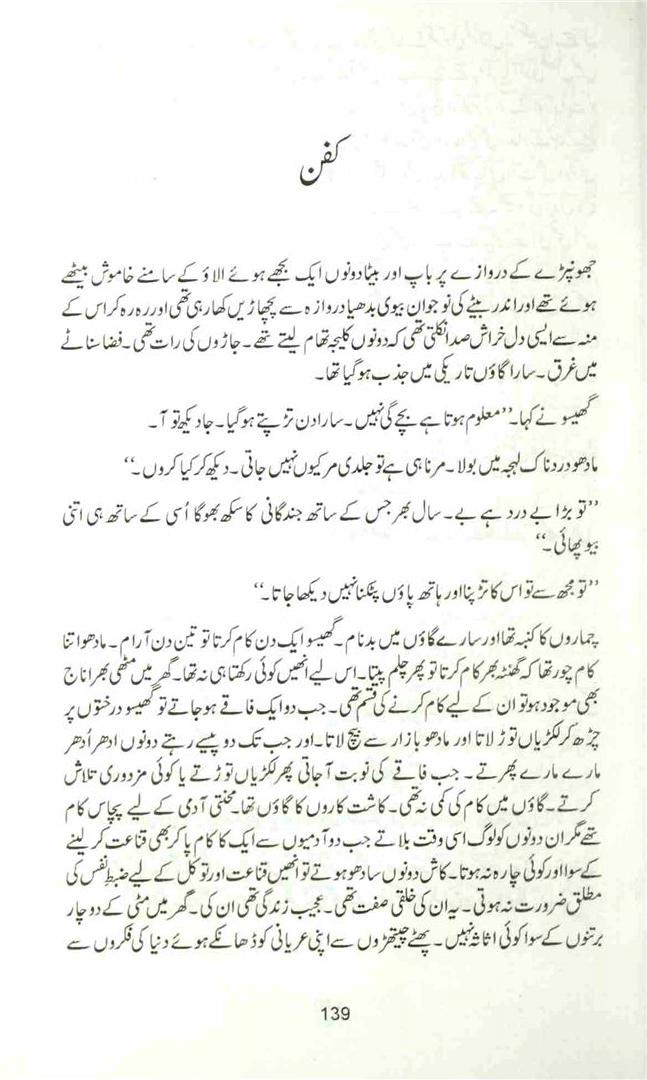 کفن
جھونپڑے کے دروازے پر باپ اور بیٹا دونوں ایک بجھے ہوئے الاؤ کے سامنے خاموش بیٹھے
ہوئے تھے اور اندر بیٹے کی نوجوان بیوی بدھیا دروازہ سے پچھاڑیں کھا رہی تھی اور رہ رہ کر اس کے
منہ سے ایسی دل خراش صدا نکلتی تھی کہ دونوں کلیجہ تھام لیتے تھے۔ جاڑوں کی رات تھی۔ فضا سناٹے
میں غرق۔ سارا گاؤں تاریکی میں جذب ہو گیا تھا۔
گھیسو نے کہا۔ ’’معلوم ہوتا ہے بچے گی نہیں۔ سارا دن تڑپتے ہو گیا۔ جا دیکھ تو آ۔
مادھو دردناک لہجہ میں بولا۔ مرنا ہی ہے تو جلدی مر کیوں نہیں جاتی۔ دیکھ کر کیا کروں۔‘‘
’’تو بڑا بے درد ہے بے۔ سال بھر جس کے ساتھ جندگانی کا سکھ بھوگا اُسی کے ساتھ ہی اتنی
بیوپھائی۔‘‘
’’تو مجھ سے تو اس کا تڑپنا اور ہاتھ پاؤں پٹکنا نہیں دیکھا جاتا۔‘‘
چماروں کا کنبہ تھا اور سارے گاؤں میں بدنام۔ گھیسو ایک دن کام کرتا تو تین دن آرام۔ مادھو اتنا
کام چور تھا کہ گھنٹہ بھر کام کرتا تو پھر چلم پیتا۔ اس لیے انھیں کوئی رکھتا ہی نہ تھا۔ گھر میں مٹھی بھر اناج
بھی موجود ہو تو ان کے لیے کام کرنے کی قسم تھی۔ جب دو ایک فاقے ہو جاتے تو گھیسو درختوں پر
چڑھ کر لکڑیاں توڑ لاتا اور مادھو بازار سے بیچ لاتا۔ اور جب تک دو پیسے رہتے دونوں ادھر اُدھر
مارے مارے پھرتے۔ جب فاقے کی نوبت آ جاتی پھر لکڑیاں توڑتے یا کوئی مزدوری تلاش
کرتے۔ گاؤں میں کام کی کمی نہ تھی۔ کاشت کاروں کا گاؤں تھا۔ محنتی آدمی کے لیے پچاس کام
تھے مگر ان دونوں کو لوگ اسی وقت بلاتے جب دو آدمیوں سے ایک کا کام پا کر بھی قناعت کر لینے
کے سوا اور کوئی چارہ نہ ہوتا۔ کاش دونوں سادھو ہوتے تو انھیں قناعت اور توکل کے لیے ضبطِ نفس کی
مطلق ضرورت نہ ہوتی۔ یہ ان کی خلقی صفت تھی۔ عجیب زندگی تھی ان کی۔ گھر میں مٹی کے دو چار
برتنوں کے سوا کوئی اثاثہ نہیں۔ پھٹے چیتھڑوں سے اپنی عریانی کو ڈھانکے ہوئے دنیا کی فکروں سے
139